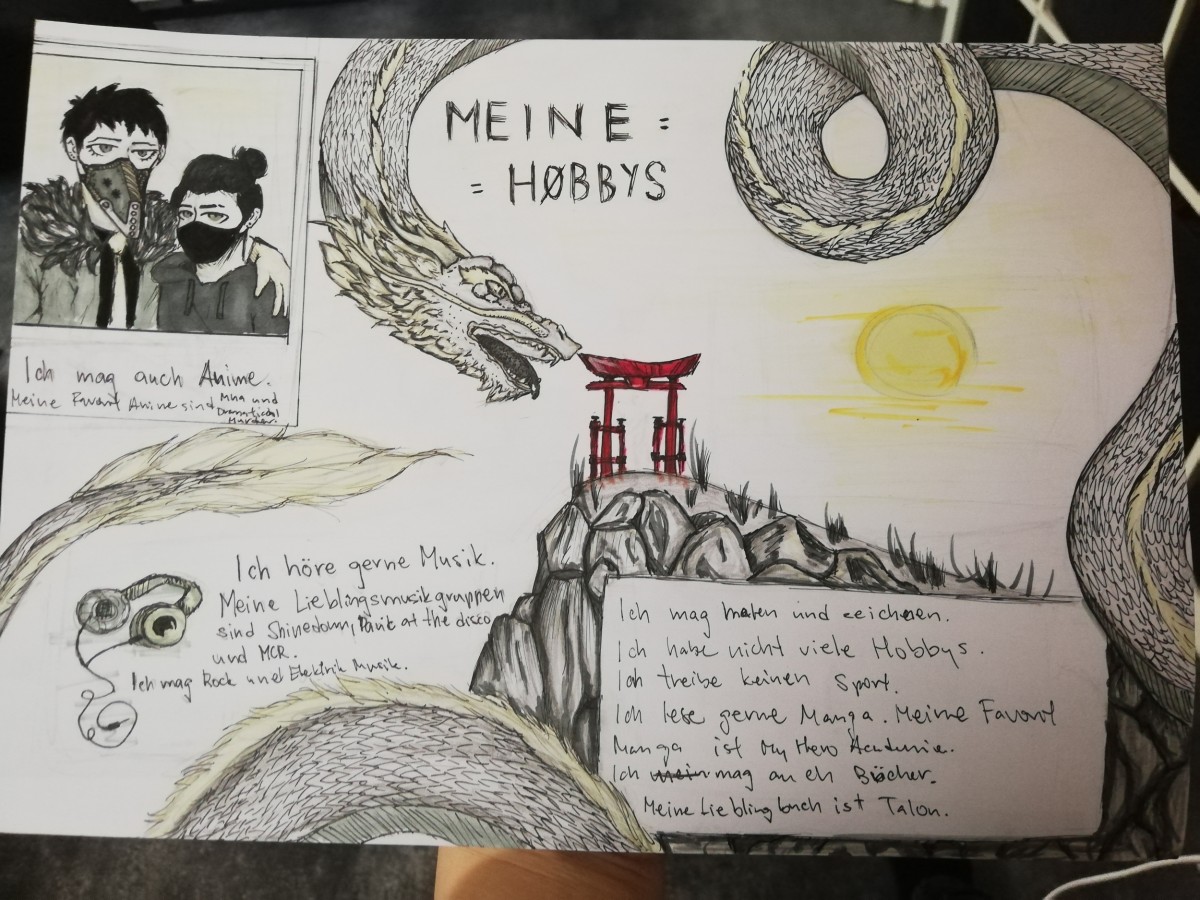 MEINE :
= HØBBYS
Ich mag auch Anime.
Meine Favorit Anime sind Mha und
Dramatical
Murder.
Ich höre gerne Musik.
Meine Lieblingsmusikgruppen
sind Shinedown, Panic at the disco
und MCR.
Ich mag Rock und Elektrik Musik.
Ich mag malen und zeichnen.
Ich habe nicht viele Hobbys.
Ich treibe keinen Sport.
Ich lese gerne Manga. Meine Favorit
Manga ist My Hero Academia.
Ich mag auch Bücher.
Meine Lieblingbuch ist Talon.